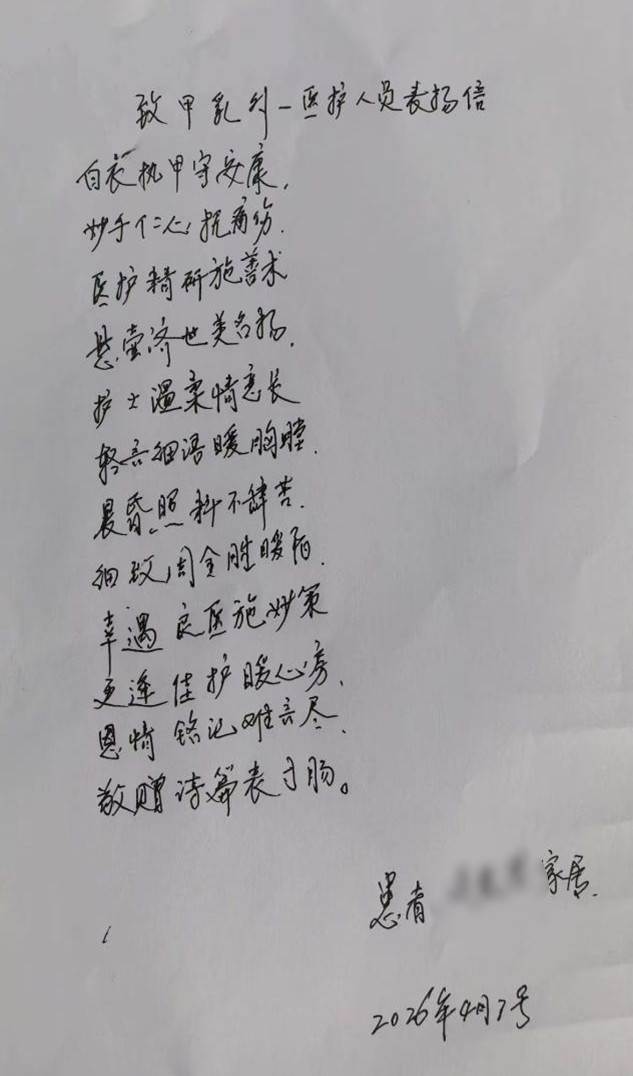 致甲乳外一医护人员表扬信
白衣执甲守安康,
妙手仁心抗病伤.
医护精研施善术
悬壶济世美名扬.
护士温柔情意长
轻言细语暖胸膛.
晨昏照料不辞苦.
细致周全胜暖阳.
幸遇良医施妙策
更逢佳护暖心房、
恩情铭记难言尽、
敬赠诗篇表寸肠。
患者 家属.
2026年4月7号